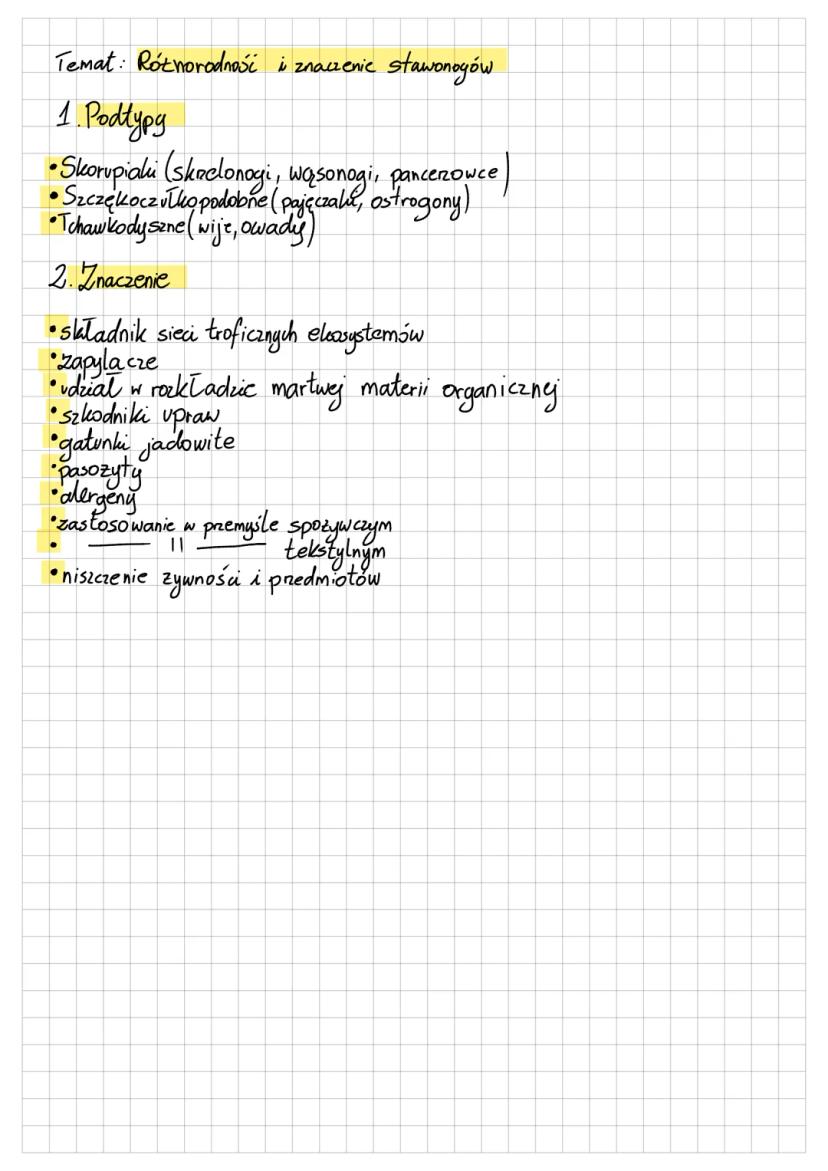 Temat: Różnorodność i znaczenie stawonogów
1. Podtypy
• Skorupiaki (skrzelonogi, wąsonogi, pancerzowce)
• Szczękoczułkopodobne (pajęczaki, ostrogony)
• Tchawkodyszne (wije, owady)
2. Znaczenie
• składnik sieci troficznych ekosystemów
• zapylacze
• udział w rozkładzie martwej materii organicznej
• szkodniki upraw
• gatunki jadowite
• pasożyty
• alergeny
• zastosowanie w przemyśle spożywczym
• —— || —— tekstylnym
• niszczenie żywności i przedmiotów